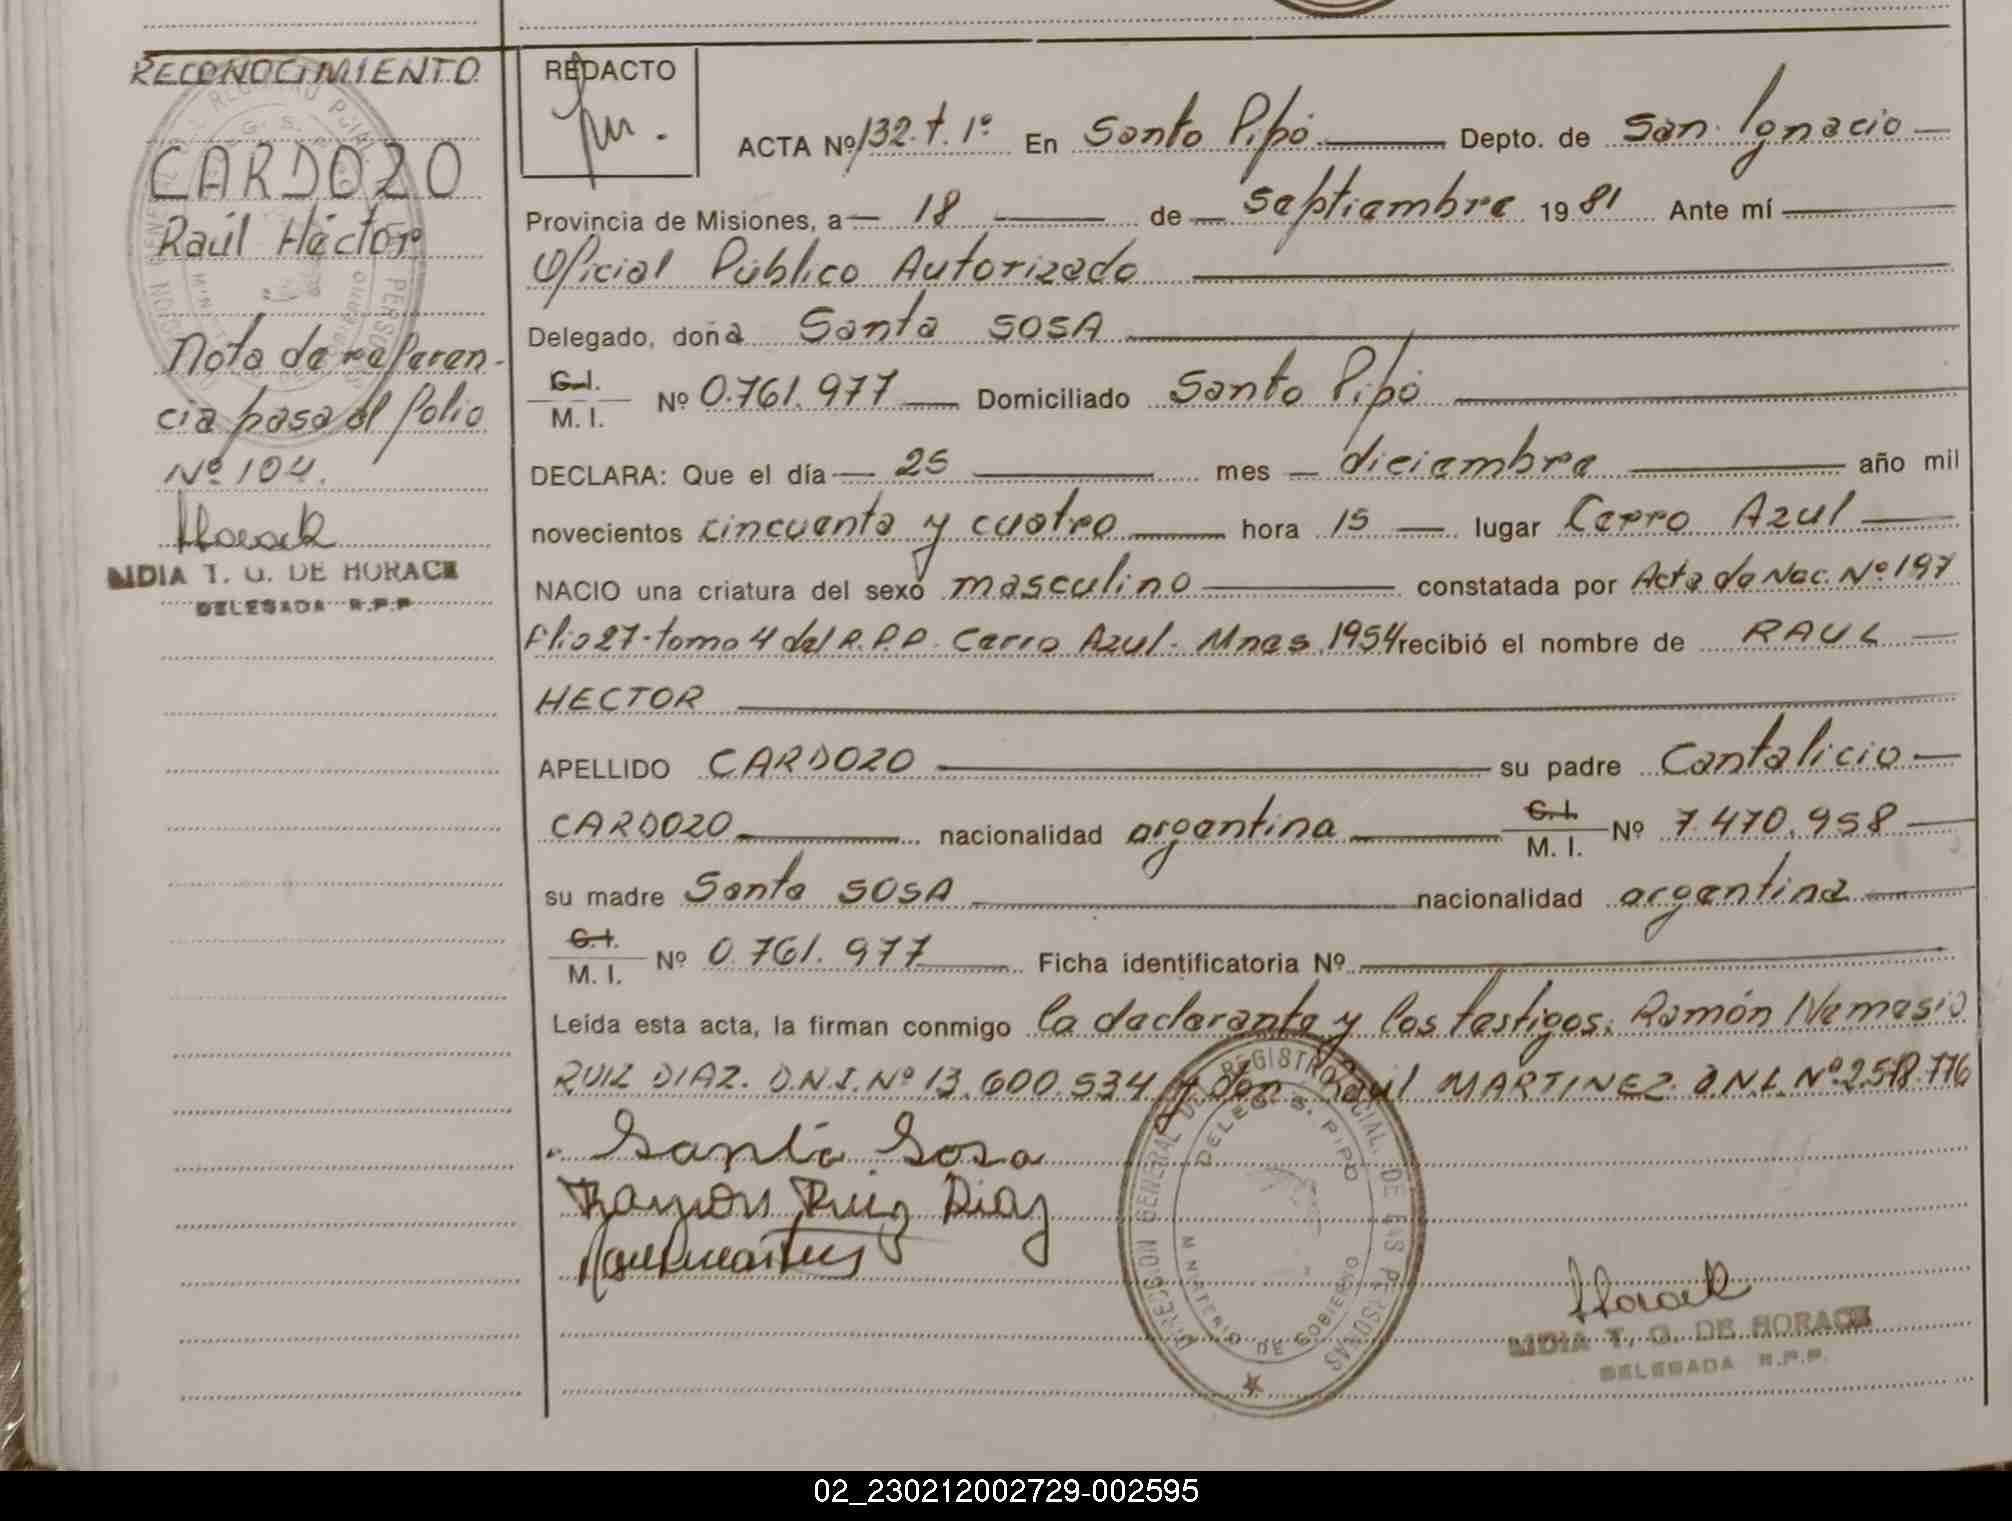 RECONOCIMIENTO
CARDOZO
Raúl Héctor
Nota de referen-
cia pasa al folio
Nº 104.
Horack
LIDIA T. G. DE HORACK
DELEGADA R.P.P.
REDACTO
ACTA Nº 132. t. 1º En Santo Pipó Depto. de San Ignacio
Provincia de Misiones, a 18 de septiembre 1981 Ante mí
Oficial Público Autorizado
Delegado, doña Santa SOSA
C.I.
M. I. Nº 0.761.977 Domiciliado Santo Pipó
DECLARA: Que el día 25 mes diciembre año mil
novecientos cincuenta y cuatro hora 15 lugar Cerro Azul
NACIO una criatura del sexo masculino constatada por Acta de Nac. Nº 197
flio 27-tomo 4 del R.P.P. Cerro Azul. Mnes. 1954 recibió el nombre de RAUL
HECTOR
APELLIDO CARDOZO su padre Cantalicio
CARDOZO nacionalidad argentina C.I. M. I. Nº 7.470.958
su madre Santa SOSA nacionalidad argentina
C.I.
M. I. Nº 0.761.977 Ficha identificatoria Nº
Leída esta acta, la firman conmigo la declarante y los testigos: Ramón Nemesio
RUIZ DIAZ. D.N.I. Nº 13.600.534 y don Raúl MARTINEZ. D.N.I. Nº
Santa Sosa
Ramon Ruiz Diaz
DIRECCION GENERAL DEL REGISTRO PCIAL. DE LAS PERSONAS
DELEG. S. PIPO
MINISTERIO DE GOBIERNO
Horack
LIDIA T. G. DE HORACK
DELEGADA R.P.P.
02_230212002729-002595